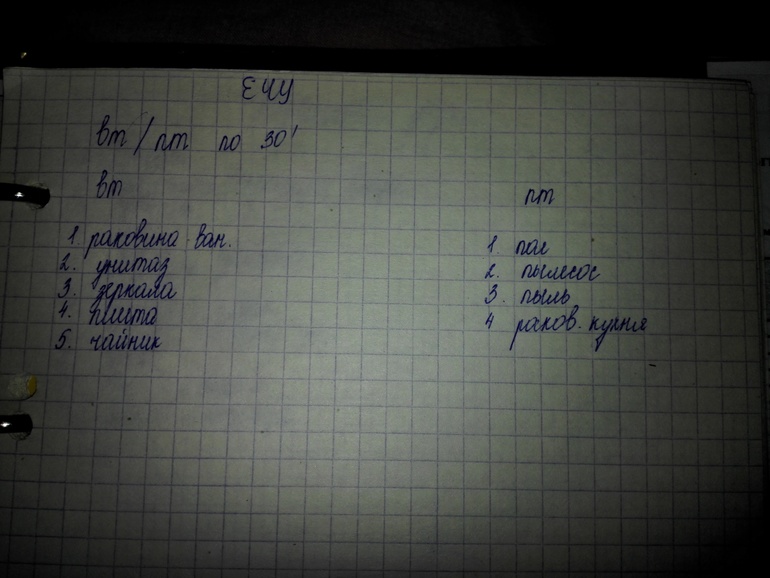 ЕЧУ
вт / пт по 30'
вт
1. раковина ван.
2. унитаз
3. зеркала
4. плита
5. чайник
пт
1. пол
2. пылесос
3. пыль
4 раков. кухня